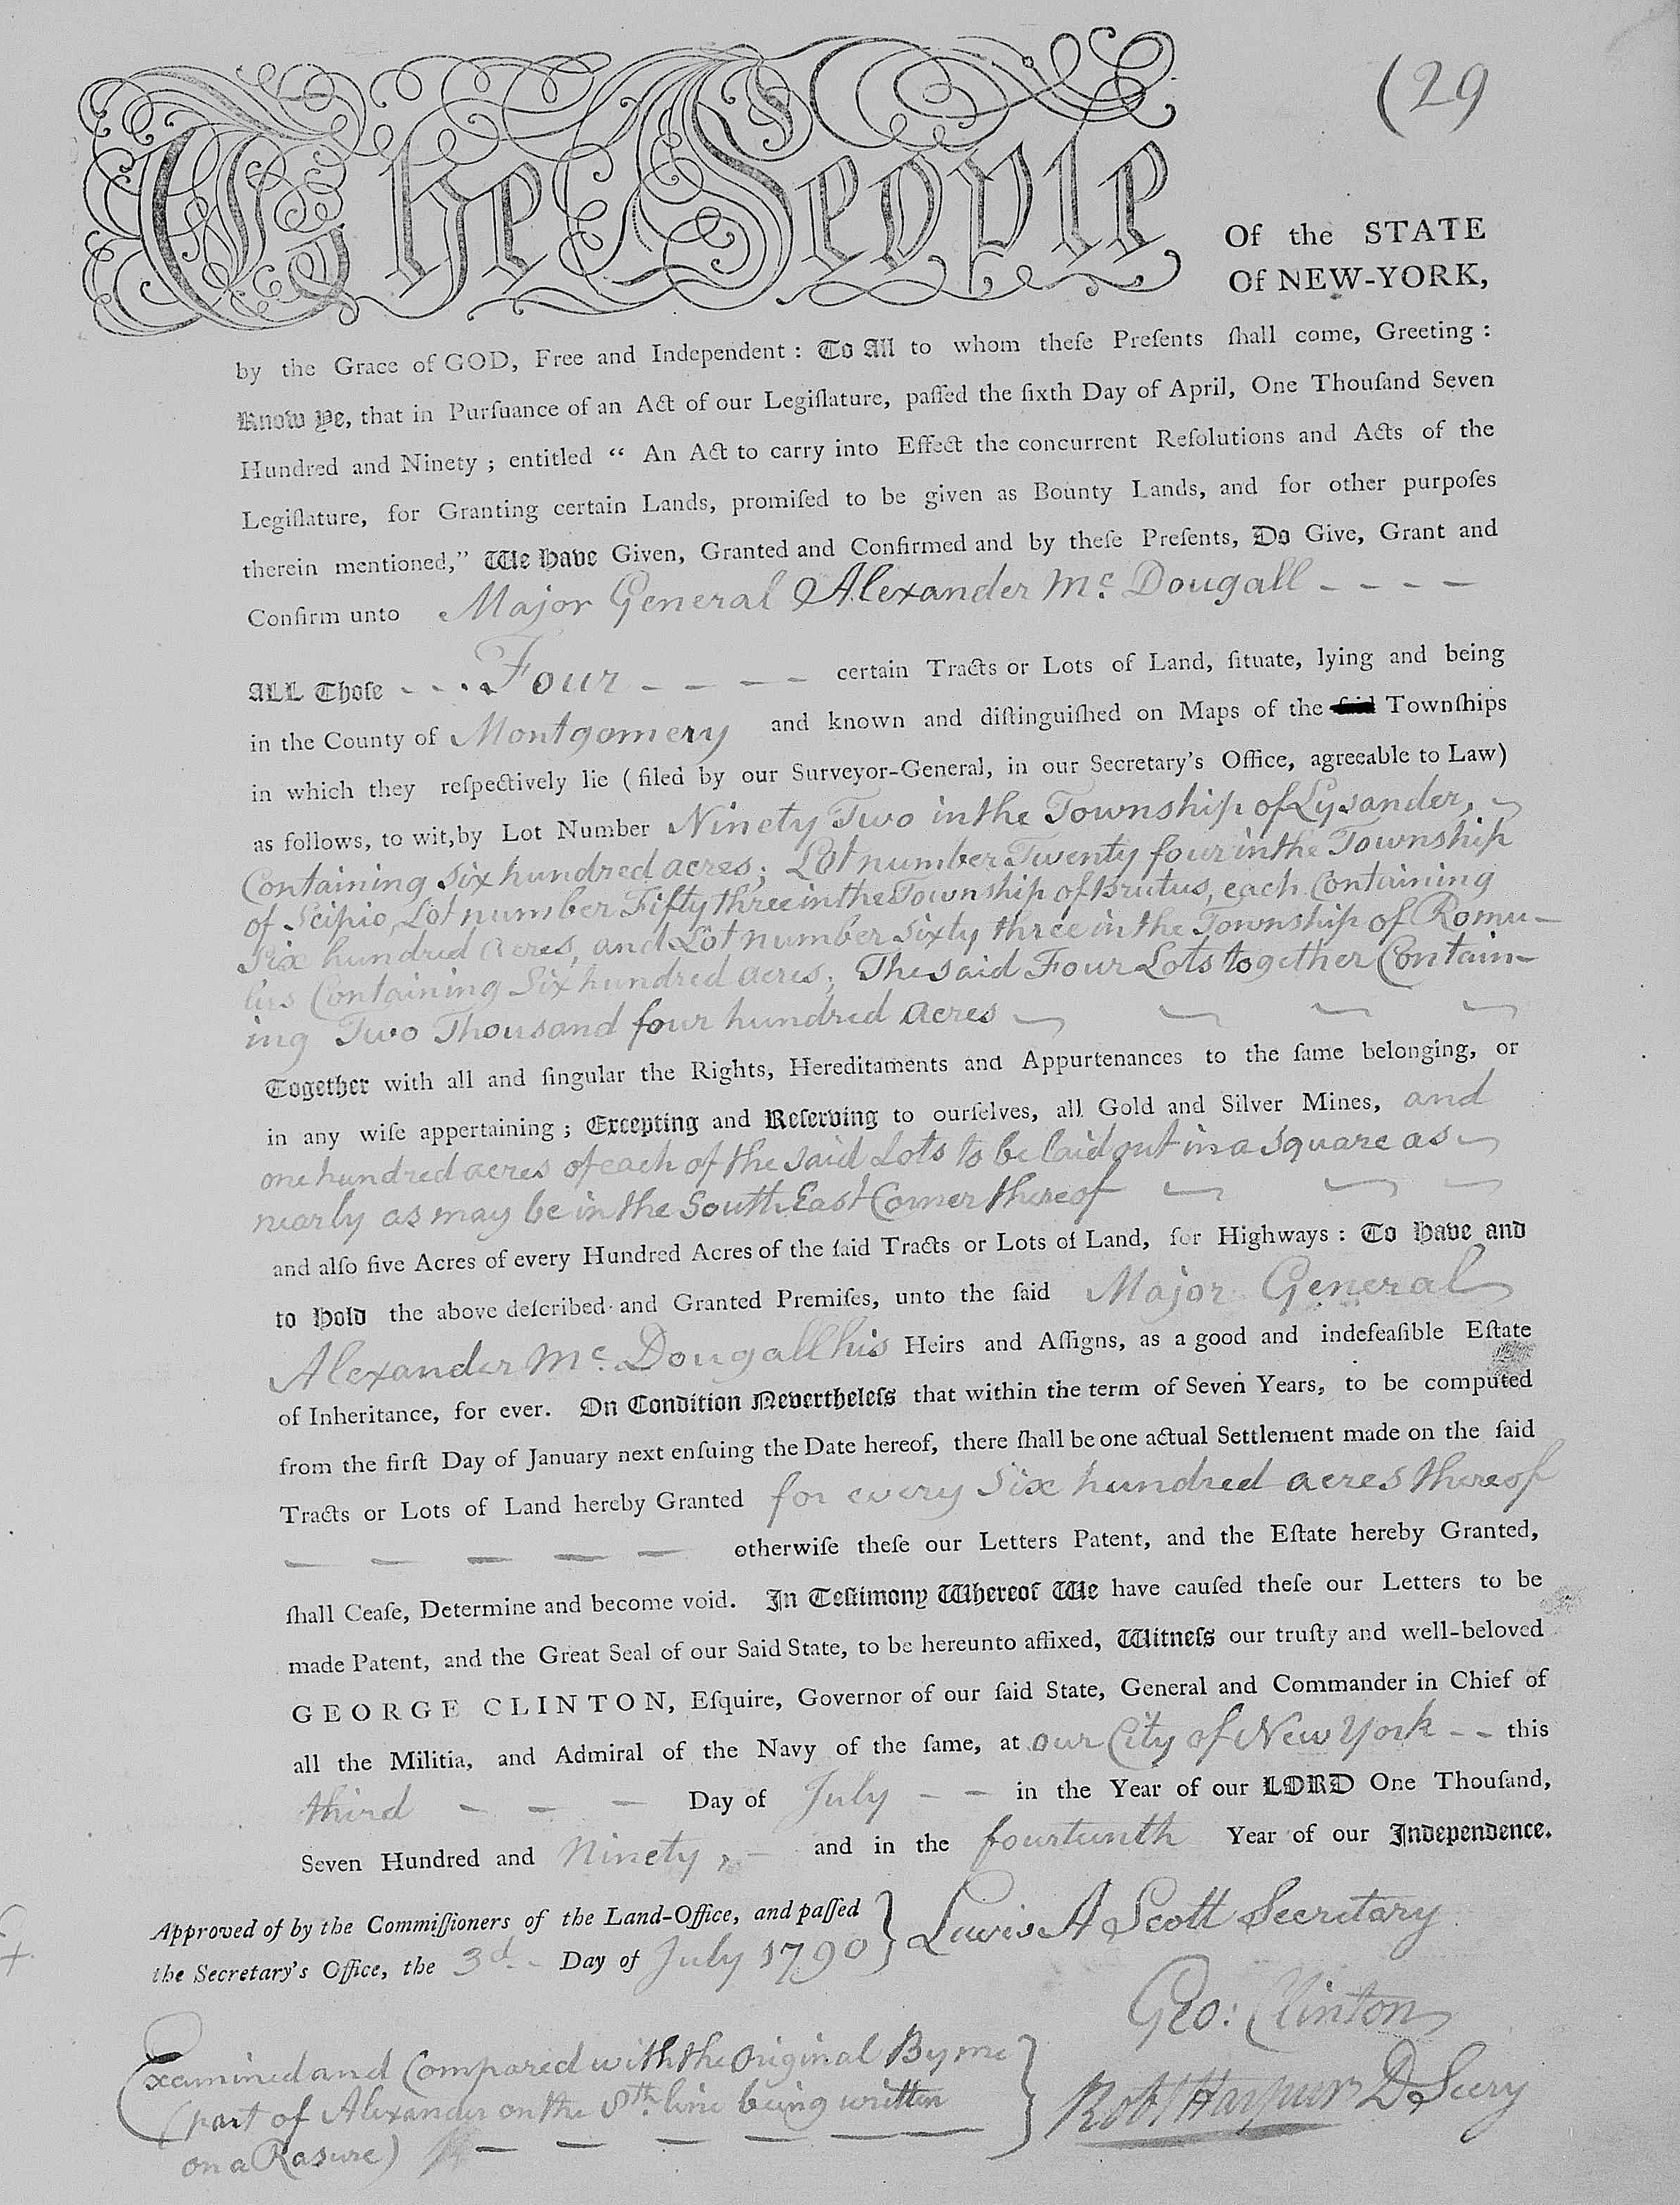 (29
The People
Of the STATE
Of NEW-YORK,
by the Grace of GOD, Free and Independent : To All to whom theſe Preſents ſhall come, Greeting :
Know Ye, that in Purſuance of an Act of our Legiſlature, paſſed the ſixth Day of April, One Thouſand Seven
Hundred and Ninety ; entitled “ An Act to carry into Effect the concurrent Reſolutions and Acts of the
Legiſlature, for Granting certain Lands, promiſed to be given as Bounty Lands, and for other purpoſes
therein mentioned,” We Have Given, Granted and Confirmed and by theſe Preſents, Do Give, Grant and
Confirm unto Major General Alexander Mc. Dougall - - - -
ALL Thoſe - - - - Four - - - - certain Tracts or Lots of Land, ſituate, lying and being
in the County of Montgomery and known and diſtinguiſhed on Maps of the ſaid Townſhips
in which they reſpectively lie ( filed by our Surveyor-General, in our Secretary's Office, agreeable to Law)
as follows, to wit, by Lot Number Ninety Two in the Township of Lysander,
Containing six hundred acres; Lot number Twenty four in the Township
of Scipio, Lot number Fifty three in the Township of Brutus, each Containing
Six hundred Acres, and Lot number Sixty three in the Township of Romu-
lus Containing Six hundred acres; The said Four Lots together Contain-
ing Two Thousand four hundred acres
Together with all and ſingular the Rights, Hereditaments and Appurtenances to the ſame belonging, or
in any wiſe appertaining ; Excepting and Reſerving to ourſelves, all Gold and Silver Mines, and
one hundred acres of each of the said Lots to be laid out in a square as
nearly as may be in the South East Corner thereof
and alſo five Acres of every Hundred Acres of the ſaid Tracts or Lots of Land, for Highways : To Have and
to Hold the above deſcribed and Granted Premiſes, unto the ſaid Major General
Alexander Mc. Dougall his Heirs and Aſſigns, as a good and indefeaſible Eſtate
of Inheritance, for ever. On Condition Nevertheleſs that within the term of Seven Years, to be computed
from the firſt Day of January next enſuing the Date hereof, there ſhall be one actual Settlement made on the ſaid
Tracts or Lots of Land hereby Granted for every Six hundred acres thereof
— — — — — otherwiſe theſe our Letters Patent, and the Eſtate hereby Granted,
ſhall Ceaſe, Determine and become void. In Teſtimony Whereof We have cauſed theſe our Letters to be
made Patent, and the Great Seal of our Said State, to be hereunto affixed, Witneſs our truſty and well-beloved
GEORGE CLINTON, Eſquire, Governor of our ſaid State, General and Commander in Chief of
all the Militia, and Admiral of the Navy of the ſame, at our City of New York - - this
third - - - Day of July - - in the Year of our LORD One Thouſand,
Seven Hundred and Ninety, - and in the fourteenth Year of our Independence.
Approved of by the Commiſſioners of the Land-Office, and paſſed
the Secretary's Office, the 3d. - Day of July 1790
Lewis A Scott Secretary
Geo: Clinton
Examined and Compared with the Original By me
(part of Alexander on the 8th. line being written
on a Rasure) — — — — — —
Robt Harpur D Secry